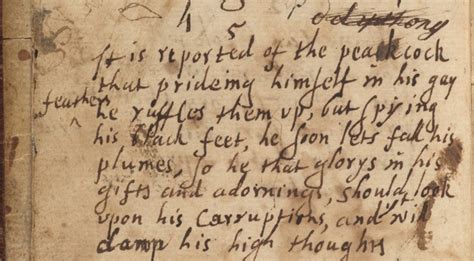 5
It is reported of the peakcock
that prideing himself in his gay
feathers
he ruffles them up, but spying
his black feet, he soon lets fal his
plumes, so he that glorys in his
gifts and adornings, should look
upon his Carruptions, and wil
damp his high thoughts